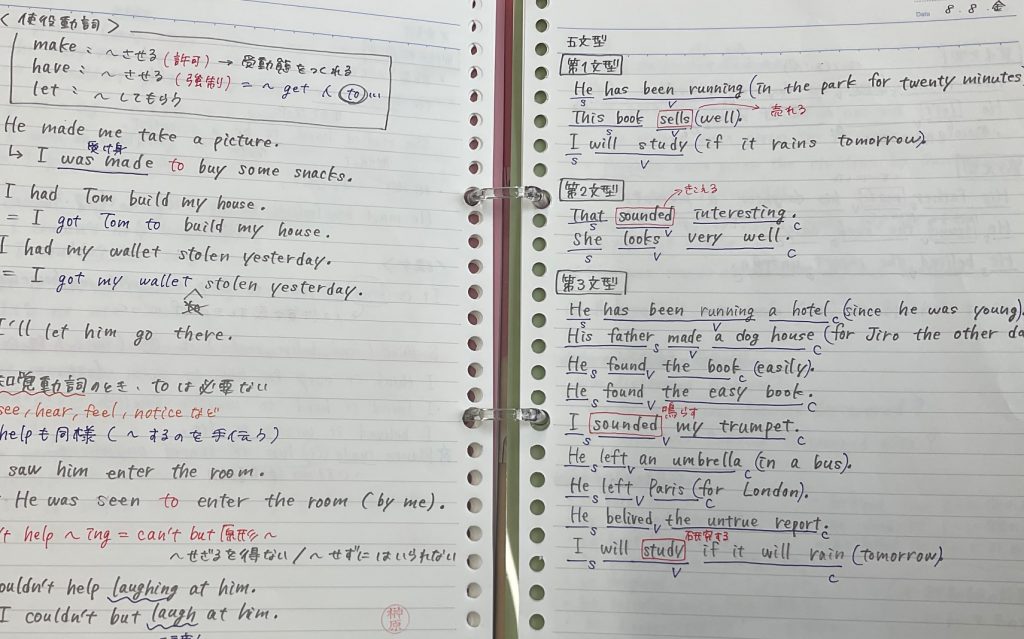 <使役動詞>
make : ～させる (許可) → 受動態をつくれる
have : ～させる (強制) = ～ get 人 to …
let : ～してもらう
He made me take a picture.
受け身
↳ I was made to buy some snacks.
I had Tom build my house.
= I got Tom to build my house.
I had my wallet stolen yesterday.
= I got my wallet stolen yesterday.
I'll let him go there.
知覚動詞のとき、toは必要ない
see, hear, feel, notice など
helpも同様 (～するのを手伝う)
saw him enter the room.
He was seen to enter the room (by me).
't help ～ing = can't but 原形～
～せざるを得ない / ～せずにはいられない
ouldn't help laughing at him.
I couldn't but laugh at him.
榊原
Date 8.8.金
五文型
第1文型
He has been running (in the park for twenty minutes
S V
This book sells (well). 売れる
S V
I will study (if it rains tomorrow).
S V
第2文型
きこえる
That sounded interesting.
S V C
She looks very well.
S V C
第3文型
He has been running a hotel (since he was young).
S V C
His father made a dog house (for Jiro the other da
S V C
He found the book (easily).
S V C
He found the easy book.
S V C
鳴らす
I sounded my trumpet.
S V C
He left an umbrella (in a bus).
S V C
He left Paris (for London).
S V C
He belived the untrue report.
S V C
研究する
I will study if it will rain (tomorrow).
S V C